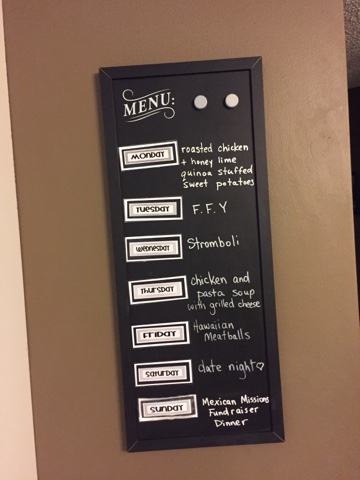 MENU:
MONDAY
roasted chicken
+ honey lime
quinoa stuffed
sweet potatoes
TUESDAY
F.F.Y
WEDNESDAY
Stromboli
THURSDAY
chicken and
pasta soup
with grilled cheese
FRIDAY
Hawaiian
Meatballs
SATURDAY
date night♡
SUNDAY
Mexican Missions
Fundraiser
Dinner